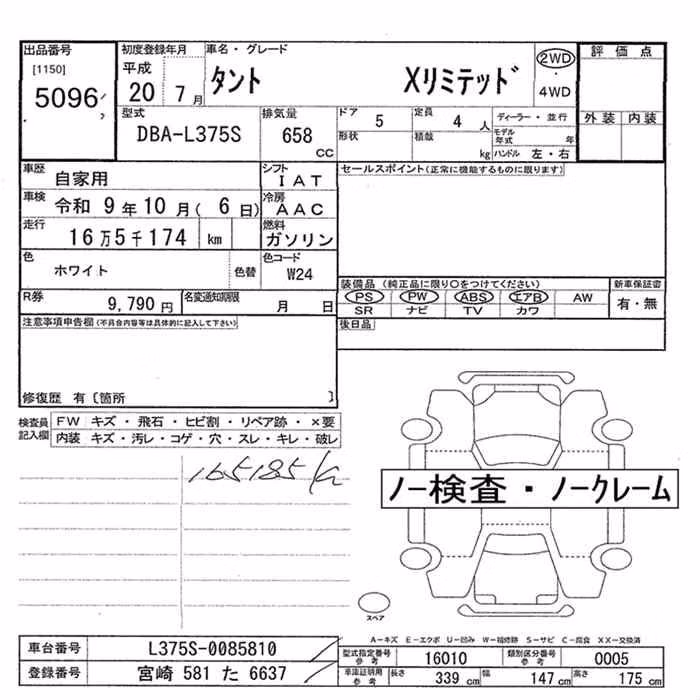 出品番号 初度登録年月 車名・グレード 評価点
[1150] 平成 タント Xリミテッド 2WD
5096 20 7月 ・ 4WD
外装 内装
型式 排気量 ドア 5 定員 4人 ディーラー・並行
DBA-L375S 658 CC 形状 積載 kg モデル年式 年
ハンドル 左・右
車歴 自家用 シフト IAT セールスポイント(正常に機能するものに限ります)
車検 令和 9年10月( 6日) 冷房 AAC
走行 16万5千174 km 燃料 ガソリン
色 ホワイト 色替 色コード W24
装備品 (純正品に限り○をつけてください) 新車保証書
R券 9,790円 名変通知期限 月 日 PS PW ABS エアB AW 有・無
SR ナビ TV カワ
注意事項申告欄(不具合内容等は具体的に記入して下さい) 後日品
修復歴 有〔箇所 〕
検査員記入欄 FW キズ・飛石・ヒビ割・リペア跡・×要
内装 キズ・汚レ・コゲ・穴・スレ・キレ・破レ
165185 k
ノー検査・ノークレーム
スペア
A-キズ E-エクボ U-凹み W-補修跡 S-サビ C-腐食 XX-交換済
車台番号 L375S-0085810 型式指定番号 参考 16010 類別区分番号 参考 0005
登録番号 宮崎 581 た 6637 車庫証明用 参考 長さ 339 cm 幅 147 cm 高さ 175 cm